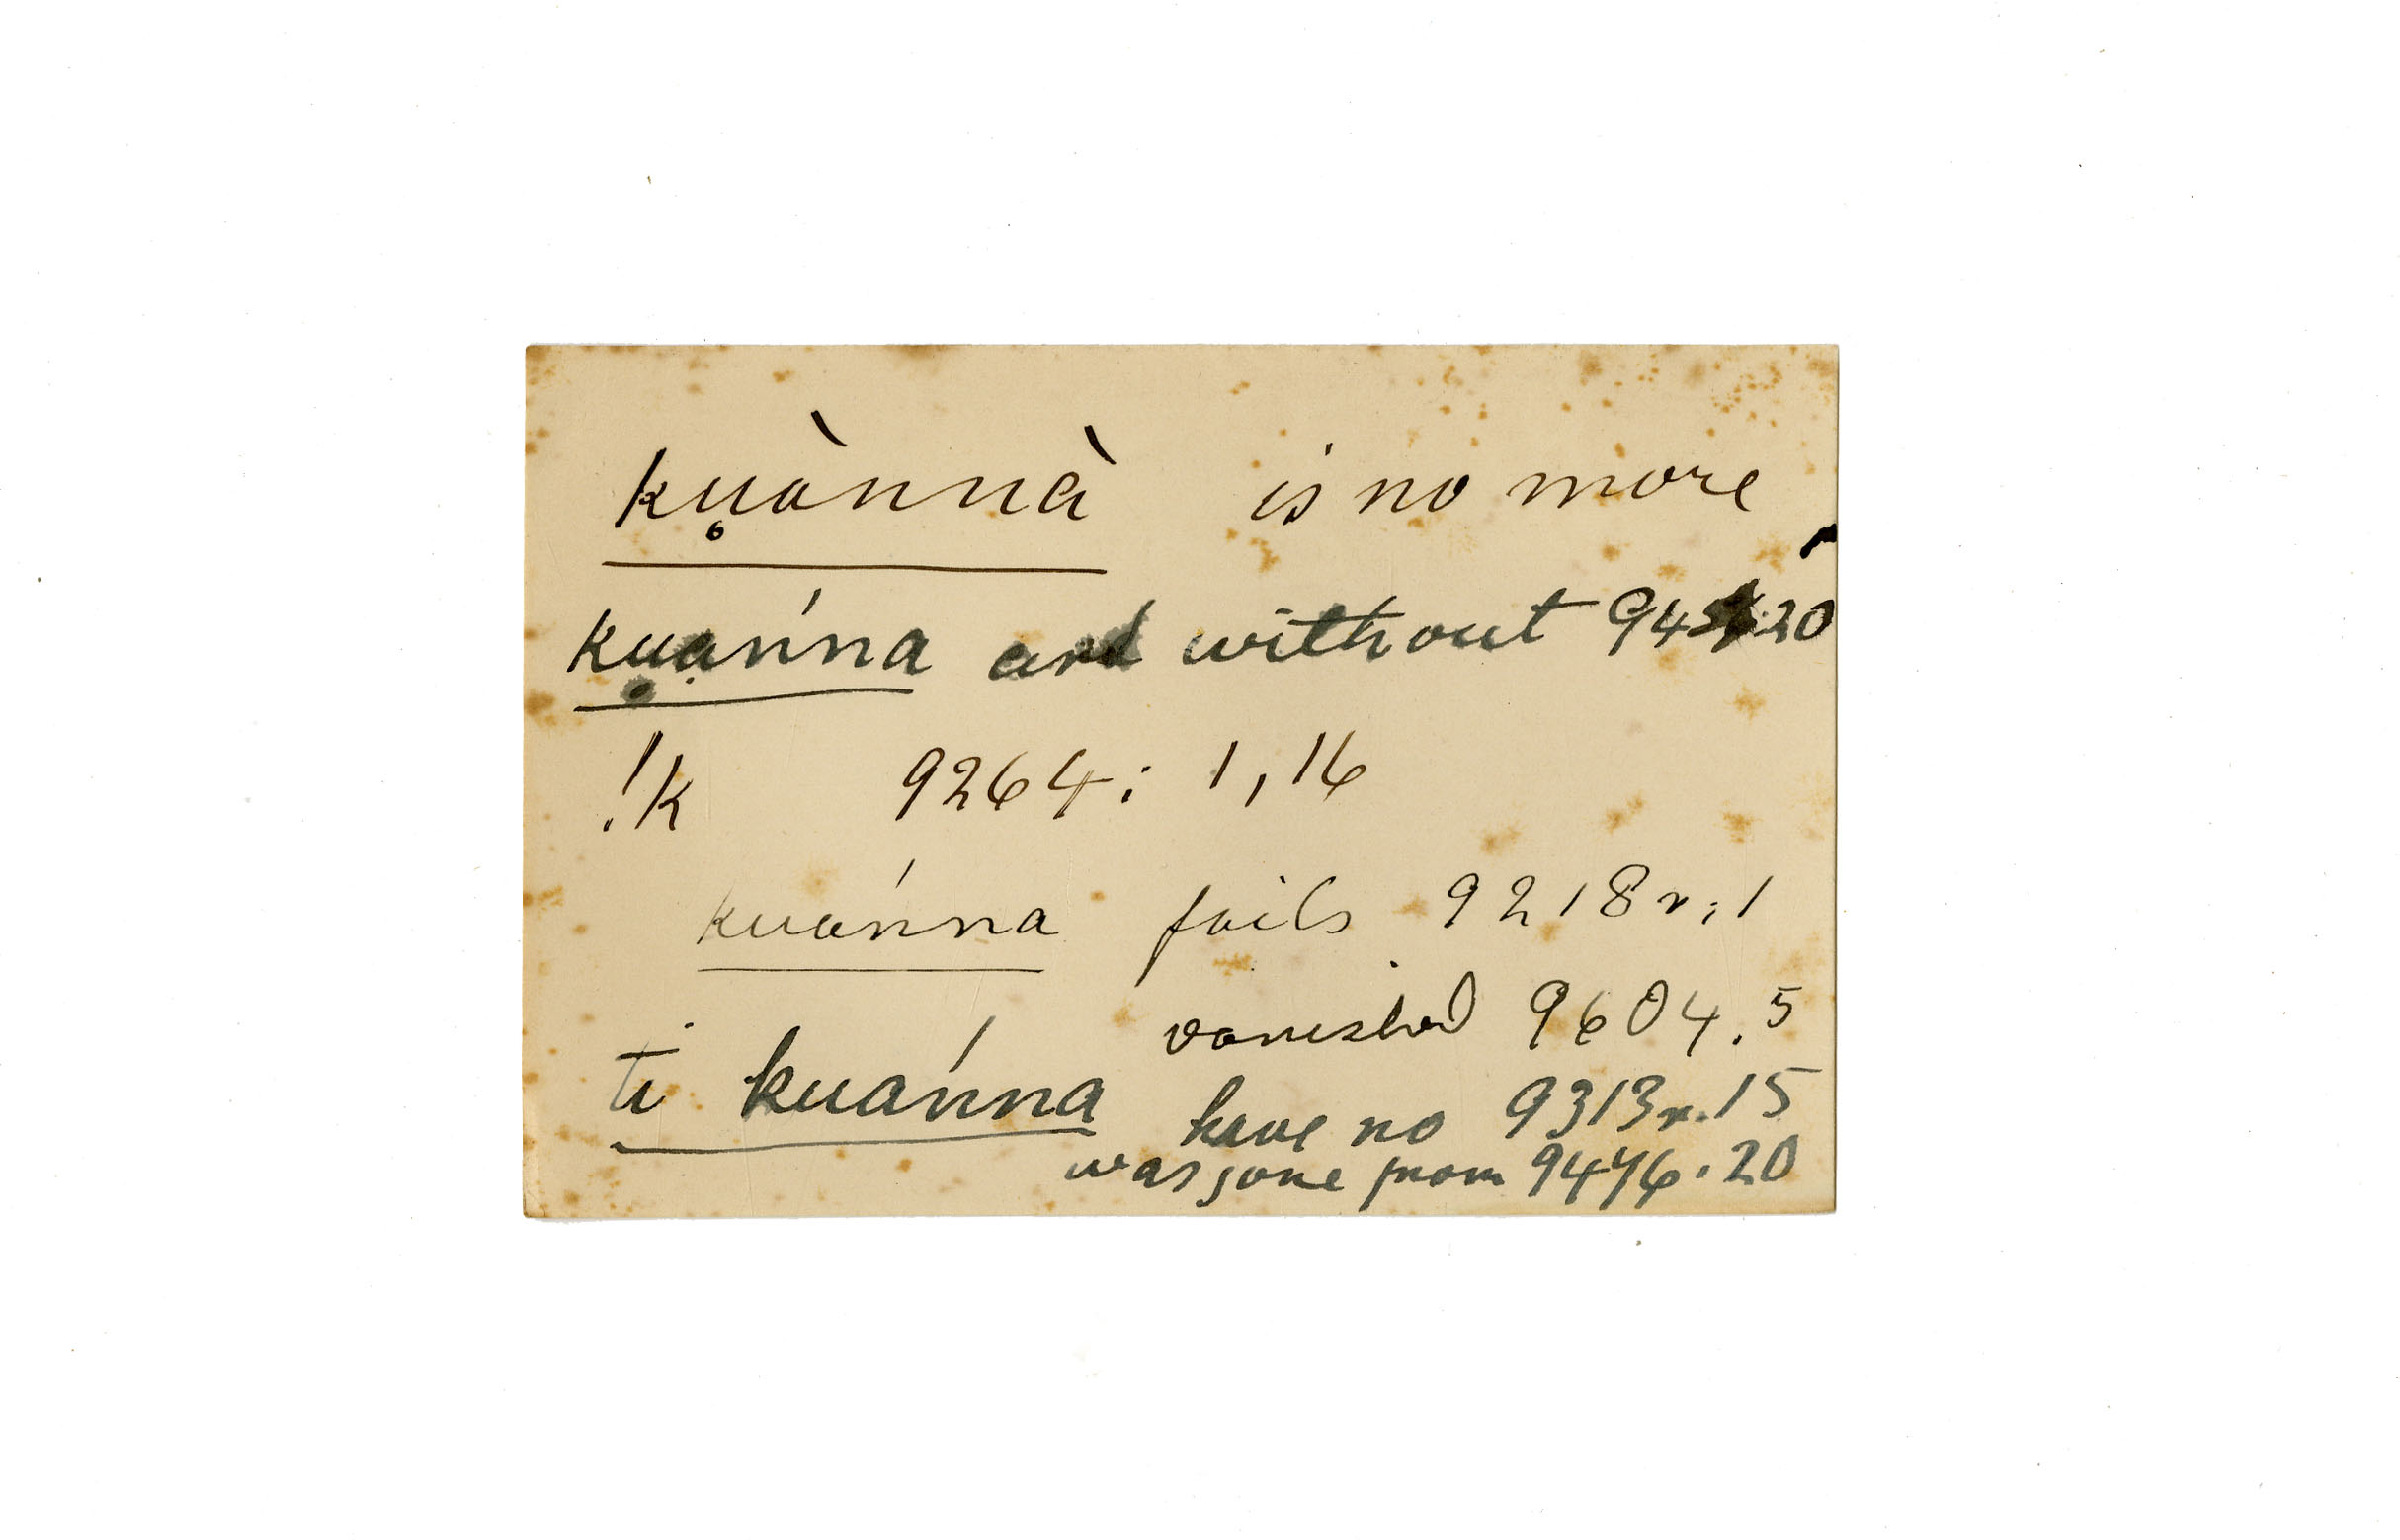 ku̥ànnà is no more
ku̥ạńna and without
!k 9264: 1, 16
kuańna fails 9218r:1
vanished 9604.5
ti kuańna have no 9313r.15
was gone from 9476.20